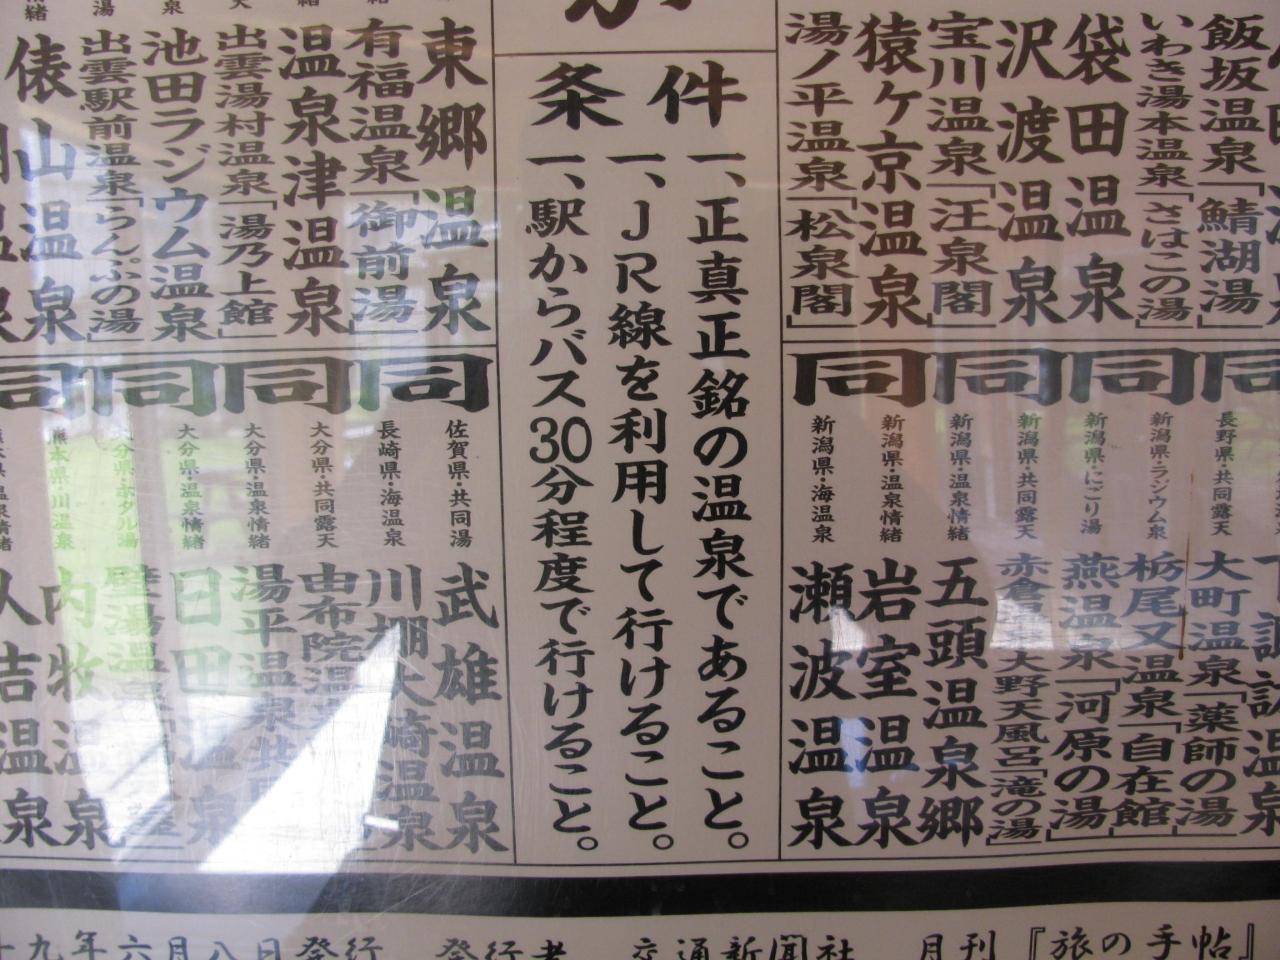 飯坂温泉「鯖湖湯」
いわき湯本温泉「さはこの湯」
袋田温泉
沢渡温泉
宝川温泉「汪泉閣」
猿ケ京温泉
湯ノ平温泉「松泉閣」
条件
一、正真正銘の温泉であること。
一、JR線を利用して行けること。
一、駅からバス30分程度で行けること。
東郷温泉
有福温泉「御前湯」
温泉津温泉
出雲湯村温泉「湯乃上館」
池田ラジウム温泉
出雲駅前温泉「らんぷの湯」
俵山温泉
同
長野県・共同露天
大町温泉「薬師の湯」
同
新潟県・ラジウム泉
栃尾又温泉「自在館」
新潟県・にごり湯
燕温泉「河原の湯」
同
新潟県・共同露天
赤倉温泉大野天風呂「滝の湯」
新潟県・温泉情緒
五頭温泉郷
同
新潟県・温泉情緒
岩室温泉
新潟県・海温泉
瀬波温泉
同
佐賀県・共同湯
武雄温泉
長崎県・海温泉
川棚大崎温泉
同
大分県・共同露天
由布院温泉
大分県・温泉情緒
湯平温泉共同
同
大分県・温泉情緒
日田温泉
大分県・ホタル湯
壁湯温泉
同
熊本県・川温泉
内牧温泉
人吉温泉
十九年六月八日発行 発行者 交通新聞社 月刊『旅の手帖』